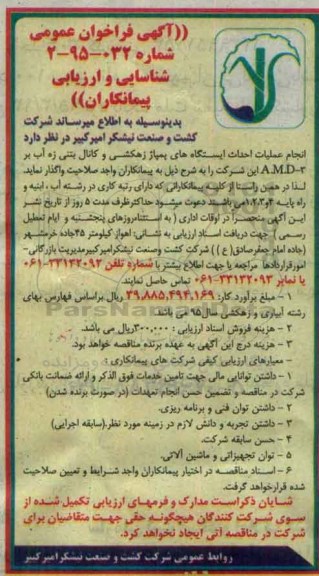 ((آگهی فراخوان عمومی
شماره ۰۳۲-۹۵-۲
شناسایی و ارزیابی
پیمانکاران))
بدینوسیله به اطلاع میرساند شرکت
کشت و صنعت نیشکر امیرکبیر در نظر دارد
انجام عملیات احداث ایستگاه های پمپاژ زهکشی و کانال بتنی زه آب بر
A.M.D-۳ این شرکت را به شرح ذیل به پیمانکاران واجد صلاحیت واگذار نماید.
لذا در همین راستا از کلیه پیمانکارانی که دارای رتبه کاری در رشته آب، ابنیه و
راه پایه ۱،۲،۳،۴ می باشند دعوت میشود حداکثر ظرف مدت ۵ روز از تاریخ نشر
این آگهی منحصراً در اوقات اداری (به استثناء روزهای پنجشنبه و ایام تعطیل
رسمی) جهت دریافت اسناد ارزیابی به نشانی: اهواز کیلومتر ۴۵ جاده خرمشهر
(جاده امام جعفرصادق(ع)) شرکت کشت وصنعت نیشکرامیرکبیر مدیریت بازرگانی-
امورقراردادها مراجعه یا جهت اطلاع بیشتر با شماره تلفن ۳۳۱۳۲۰۹۲-۰۶۱
یا نمابر ۳۳۱۳۲۰۹۳-۰۶۱ تماس حاصل نمایند.
۱ - مبلغ برآورد کار: ۳۹,۸۸۵,۴۹۴,۱۶۹ ریال براساس فهارس بهای
رشته آبیاری و زهکشی سال ۹۵ می باشد.
۲ - هزینه فروش اسناد ارزیابی: ۳۰۰,۰۰۰ ریال می باشد.
۳ - هزینه درج این آگهی به عهده برنده مناقصه خواهد بود.
- معیارهای ارزیابی کیفی شرکت های پیمانکاری:
۱ - داشتن توانایی مالی جهت تامین خدمات فوق الذکر و ارائه ضمانت بانکی
شرکت در مناقصه و تضمین حسن انجام تعهدات (در صورت برنده شدن)
۲ - داشتن توان فنی و برنامه ریزی.
۳ - داشتن تجربه و دانش لازم در زمینه مورد نظر.(سابقه اجرایی)
۴ - حسن سابقه شرکت.
۵ - توان تجهیزاتی و ماشین آلاتی.
۶ - اسناد مناقصه در اختیار پیمانکاران واجد شرایط و تعیین صلاحیت
شده قرارخواهد گرفت.
شایان ذکراست مدارک و فرمهای ارزیابی تکمیل شده از
سوی شرکت کنندگان هیچگونه حقی جهت متقاضیان برای
شرکت در مناقصه آتی ایجاد نخواهد کرد.
روابط عمومی شرکت کشت و صنعت نیشکر امیرکبیر